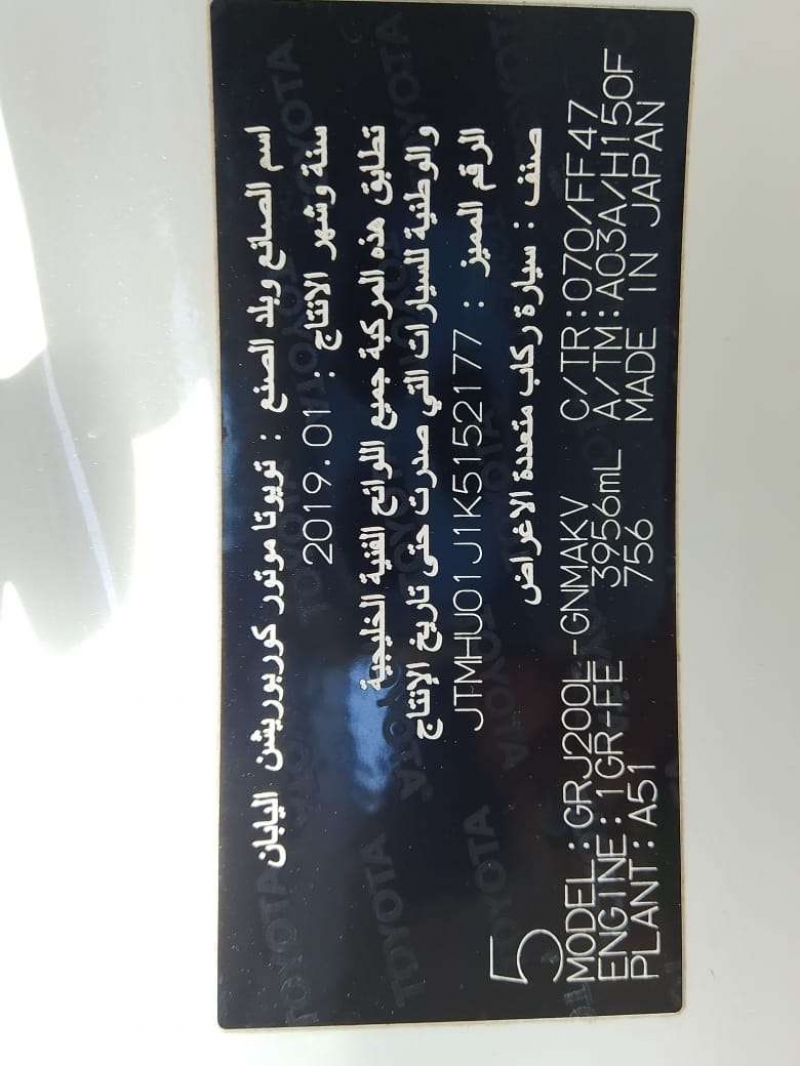 اسم الصانع وبلد الصنع : تويوتا موتور كوربوريشن اليابان
سنة وشهر الانتاج : 2019.01
تطابق هذه المركبة جميع اللوائح الفنية الخليجية
والوطنية للسيارات التي صدرت حتى تاريخ الإنتاج
الرقم المميز : JTMHU01J1K5152177
صنف : سيارة ركاب متعددة الاغراض
5
MODEL:GRJ200L-GNMAKV C/TR:070/FF47
ENGINE:1GR-FE 3956mL A/TM:A03A/H150F
PLANT:A51 756 MADE IN JAPAN